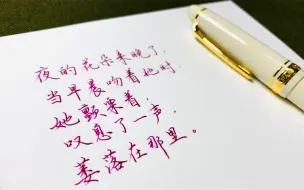 夜的花朵来晚了，
当早晨吻着她时，
她颤栗着，
叹息了一声，
萎落在那里。